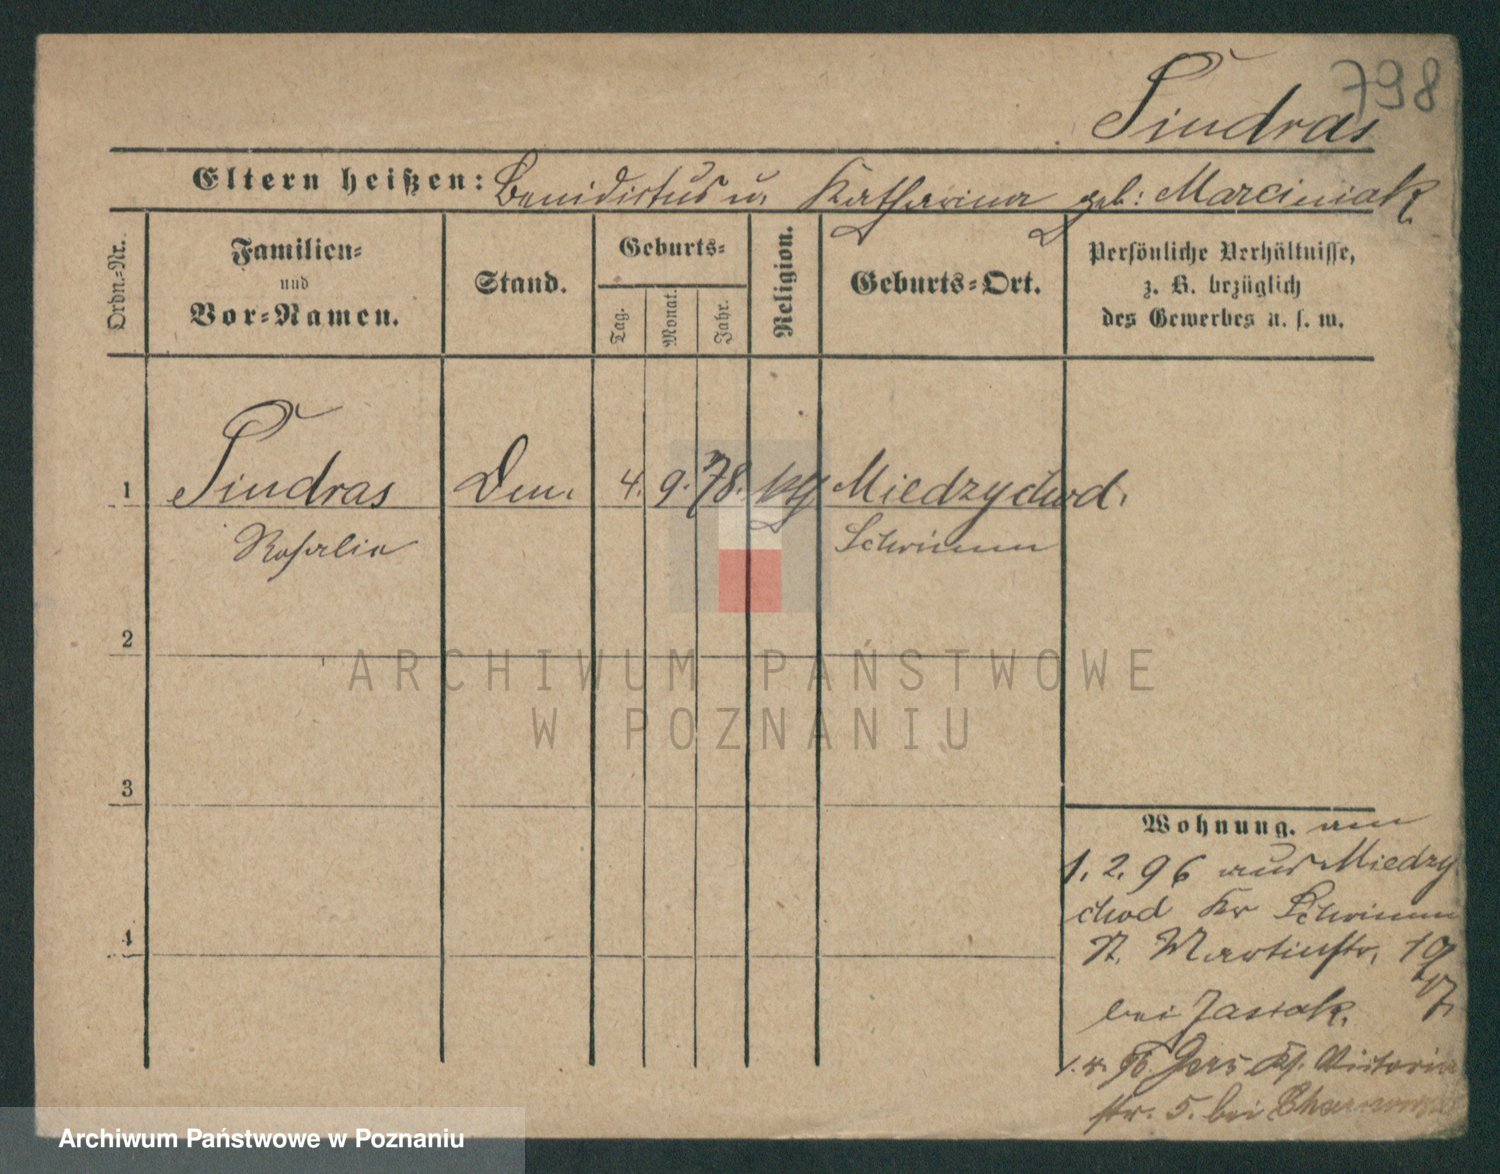 798
Pindras
Eltern heißen: Benidictus u. Katharina geb: Marciniak
Ordn.-Nr.
Familien-
und
Vor-Namen.
Stand.
Geburts-
Tag.
Monat.
Jahr.
Religion.
Geburts-Ort.
Persönliche Verhältnisse,
z. B. bezüglich
des Gewerbes u. s. w.
1 Pindras 4. 9. 78. kth Miedzychod.
Rosalie Schrimm
2
3
4
Wohnung. am
1. 2. 96 aus Miedzy
chod Kr Schrimm
St. Martinstr. 19
bei Jasiak.
Victoria
str. 5. bei
ARCHIWUM PAŃSTWOWE
W POZNANIU
Archiwum Państwowe w Poznaniu